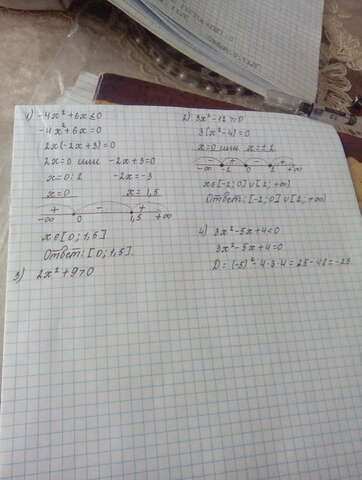 1) -4x² + 6x ≤ 0
-4x² + 6x = 0
2x(-2x + 3) = 0
2x = 0 или -2x + 3 = 0
x = 0 : 2 -2x = -3
x = 0 x = 1,5
+ - +
-∞ 0 1,5 +∞
x ∈ [0 ; 1,5]
Ответ: [0 ; 1,5].
3) 2x² + 9 > 0
2) 3x² - 12 ≥ 0
3(x² - 4) = 0
x = 0 или x = ± 2
- + - +
-∞ -2 0 2 +∞
x ∈ [-2 ; 0] ∪ [2 ; +∞)
Ответ: [-2 ; 0] ∪ [2 ; +∞)
4) 3x² - 5x + 4 < 0
3x² - 5x + 4 = 0
D = (-5)² - 4·3·4 = 25 - 48 = -23